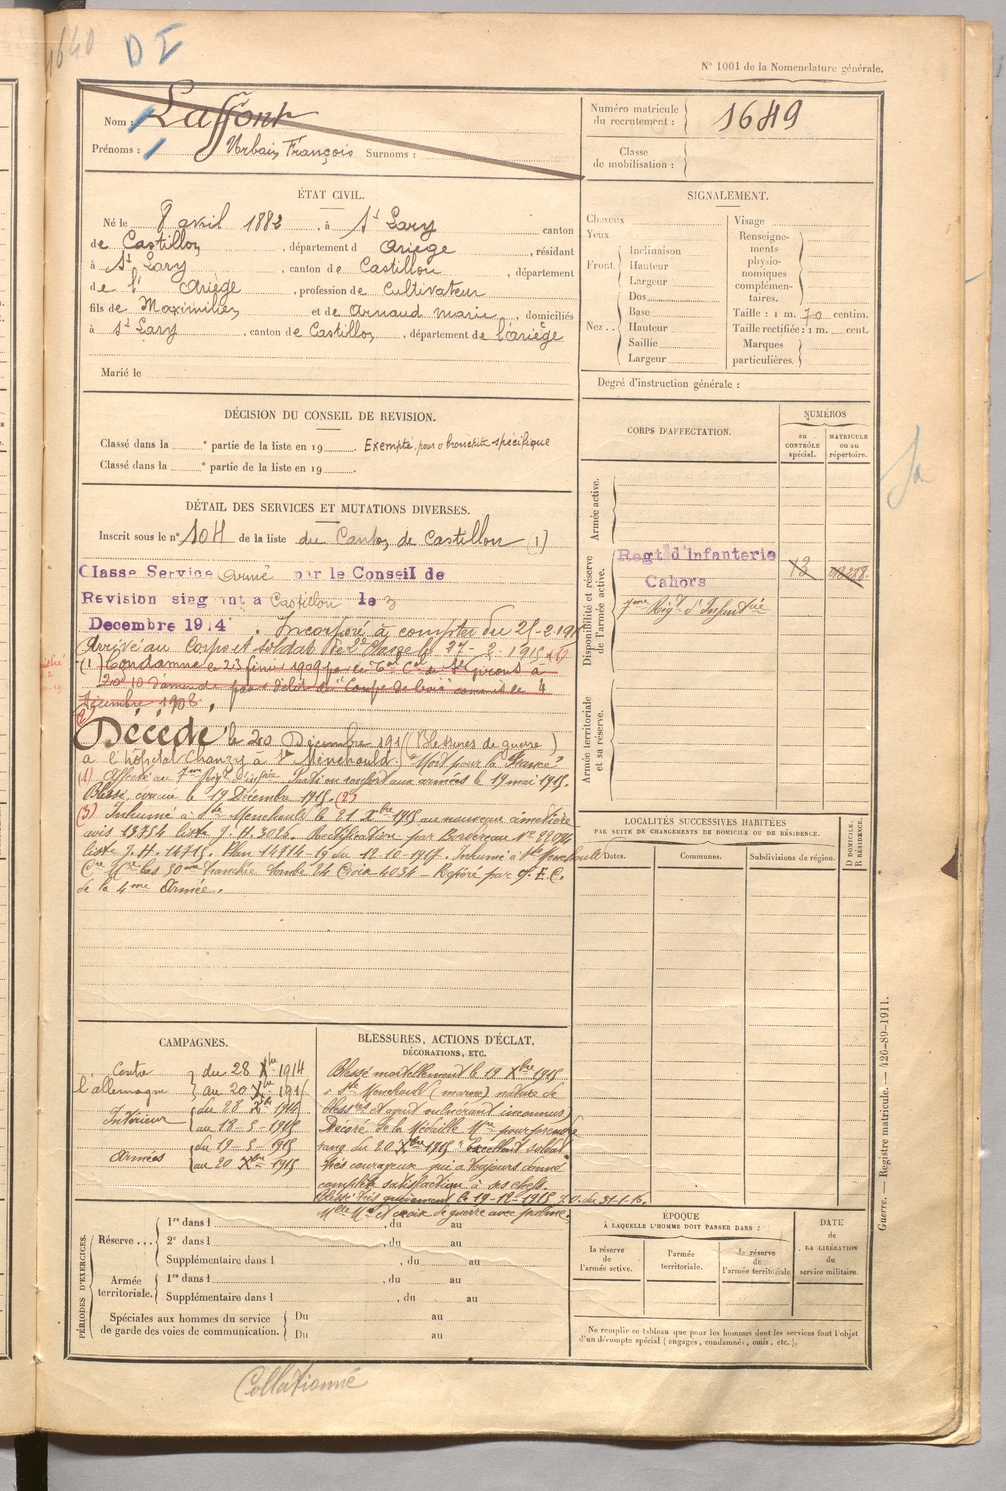 1640
D I
N° 1001 de la Nomenclature générale.
Nom : Laffont
Prénoms : Urbain François Surnoms :
Numéro matricule du recrutement : 1649
Classe de mobilisation :
ÉTAT CIVIL.
Né le 8 avril 1882, à St Lary canton
de Castillon, département d Ariège, résidant
à St Lary, canton de Castillon, département
de l' Ariège, profession de Cultivateur
fils de Maximilien et de Arnaud Marie, domiciliés
à St Lary, canton de Castillon, département de l'Ariège
Marié le
SIGNALEMENT.
Cheveux
Yeux
Front
Inclinaison
Hauteur
Largeur
Nez..
Dos
Base
Hauteur
Saillie
Largeur
Visage
Renseignements physionomiques complémentaires.
Taille : 1 m. 70 centim.
Taille rectifiée : 1 m. cent.
Marques particulières.
Degré d'instruction générale :
DÉCISION DU CONSEIL DE REVISION.
Classé dans la e partie de la liste en 19 . Exempté pour bronchite spécifique
Classé dans la e partie de la liste en 19 .
DÉTAIL DES SERVICES ET MUTATIONS DIVERSES.
Inscrit sous le n° 104 de la liste du Canton de Castillon (1)
Classe Service Armé par le Conseil de
Revision siegeant a Castillon le 3
Decembre 1914. Incorporé à compter du 25-2-191
Arrivé au Corps et soldat de 2e Classe le 27-2-1915
(1) Condamné le 23 février 1909 par le St Girons à
d'amende pour délit de Coupe de bois commis le 4
décembre 1908.
Décédé le 20 Décembre 191 (Blessures de guerre)
à l'hôpital Chanzy à Ste Ménehould. "Mort pour la France"
(1) Affecté au 7me Régt d'Infrie. Parti en renfort aux armées le 19 mai 1915.
Blessé, évacué le 19 Décembre 1915. (2)
(3) Inhumé à Ste Menehould le 21 Xbre 1915 au nouveau cimetière
avis 13754 liste J. H. Rectification par Bordereau
liste J. H. 14715. Plan 14714-19 du 12.10.1917. Inhumé à Ste Menehould
Tranchée Tombe 24 Croix 4034 - Repéré par
de la 4me Armée.
CORPS D'AFFECTATION.
NUMÉROS
au CONTRÔLE spécial.
MATRICULE ou au répertoire.
Armée active.
Disponibilité et réserve de l'armée active.
Regt d'Infanterie
Cahors
7me Régt d'Infanterie
Armée territoriale et sa réserve.
LOCALITÉS SUCCESSIVES HABITÉES
PAR SUITE DE CHANGEMENTS DE DOMICILE OU DE RÉSIDENCE.
Dates.
Communes.
Subdivisions de région.
D DOMICILE.
R RÉSIDENCE.
CAMPAGNES.
Contre l'allemagne
du 28 Xbre 1914
au 20 Xbre 191
Intérieur
du 28 Xbre 1914
au 18-5-1915
Armées
du 19-5-1915
au 20 Xbre 1915
BLESSURES, ACTIONS D'ÉCLAT,
DÉCORATIONS, ETC.
Blessé mortellement le 19 Xbre 1915
à Ste Menehould (marne) nature de
blessures et agent vulnérant inconnus
Décoré de la Médaille Mre pour prendre
rang du 20 Xbre 1915 "Excellent soldat
très courageux qui a toujours donné
complète satisfaction à ses chefs.
Blessé très grièvement le 19-12-1915 J.O. du 31-1-16.
Mlle Mre et croix de guerre avec palme.
PÉRIODES D'EXERCICES.
Réserve...
1re dans l , du au
2e dans l , du au
Supplémentaire dans l , du au
Armée territoriale.
1re dans l , du au
Supplémentaire dans l , du au
Spéciales aux hommes du service de garde des voies de communication.
Du au
Du au
ÉPOQUE
À LAQUELLE L'HOMME DOIT PASSER DANS :
la réserve de l'armée active.
l'armée territoriale.
la réserve de l'armée territoriale
DATE de LA LIBÉRATION du service militaire.
Ne remplir ce tableau que pour les hommes dont les services font l'objet
d'un décompte spécial (engagés, condamnés, omis, etc.).
Guerre. — Registre matricule. — 426-89-1911.
Collationné